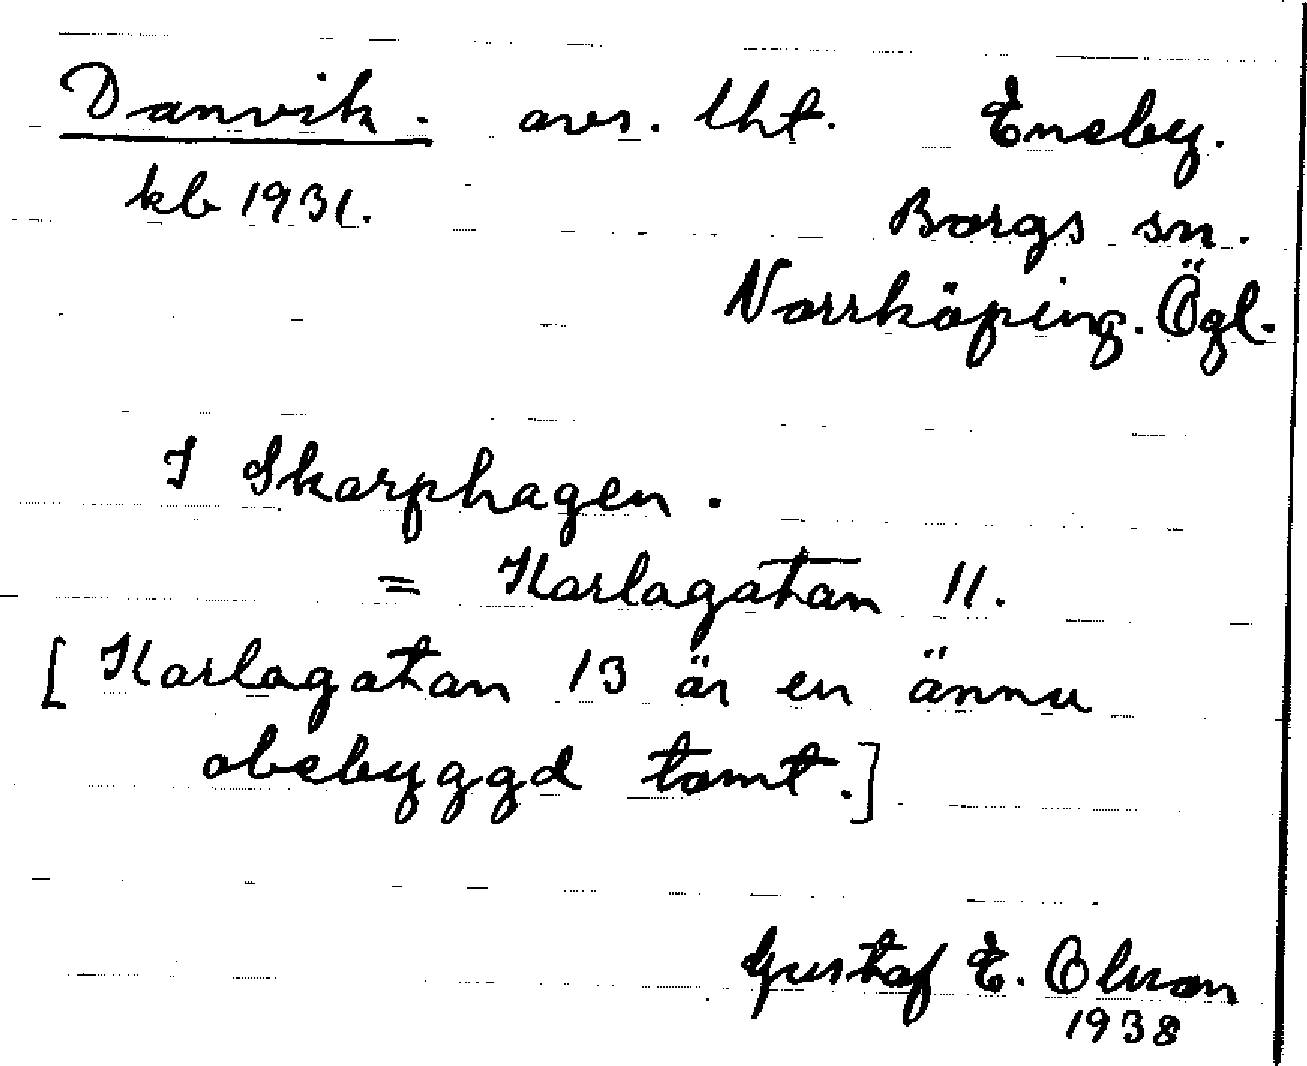 Danvik. avs. lht. Eneby.
kb 1931. Borgs sn.
Norrköping. Ögl.
I Skarphagen.
= Karlagatan 11.
[Karlagatan 13 är en ännu
obebyggd tomt.]
Gustaf E. Olsson
1938